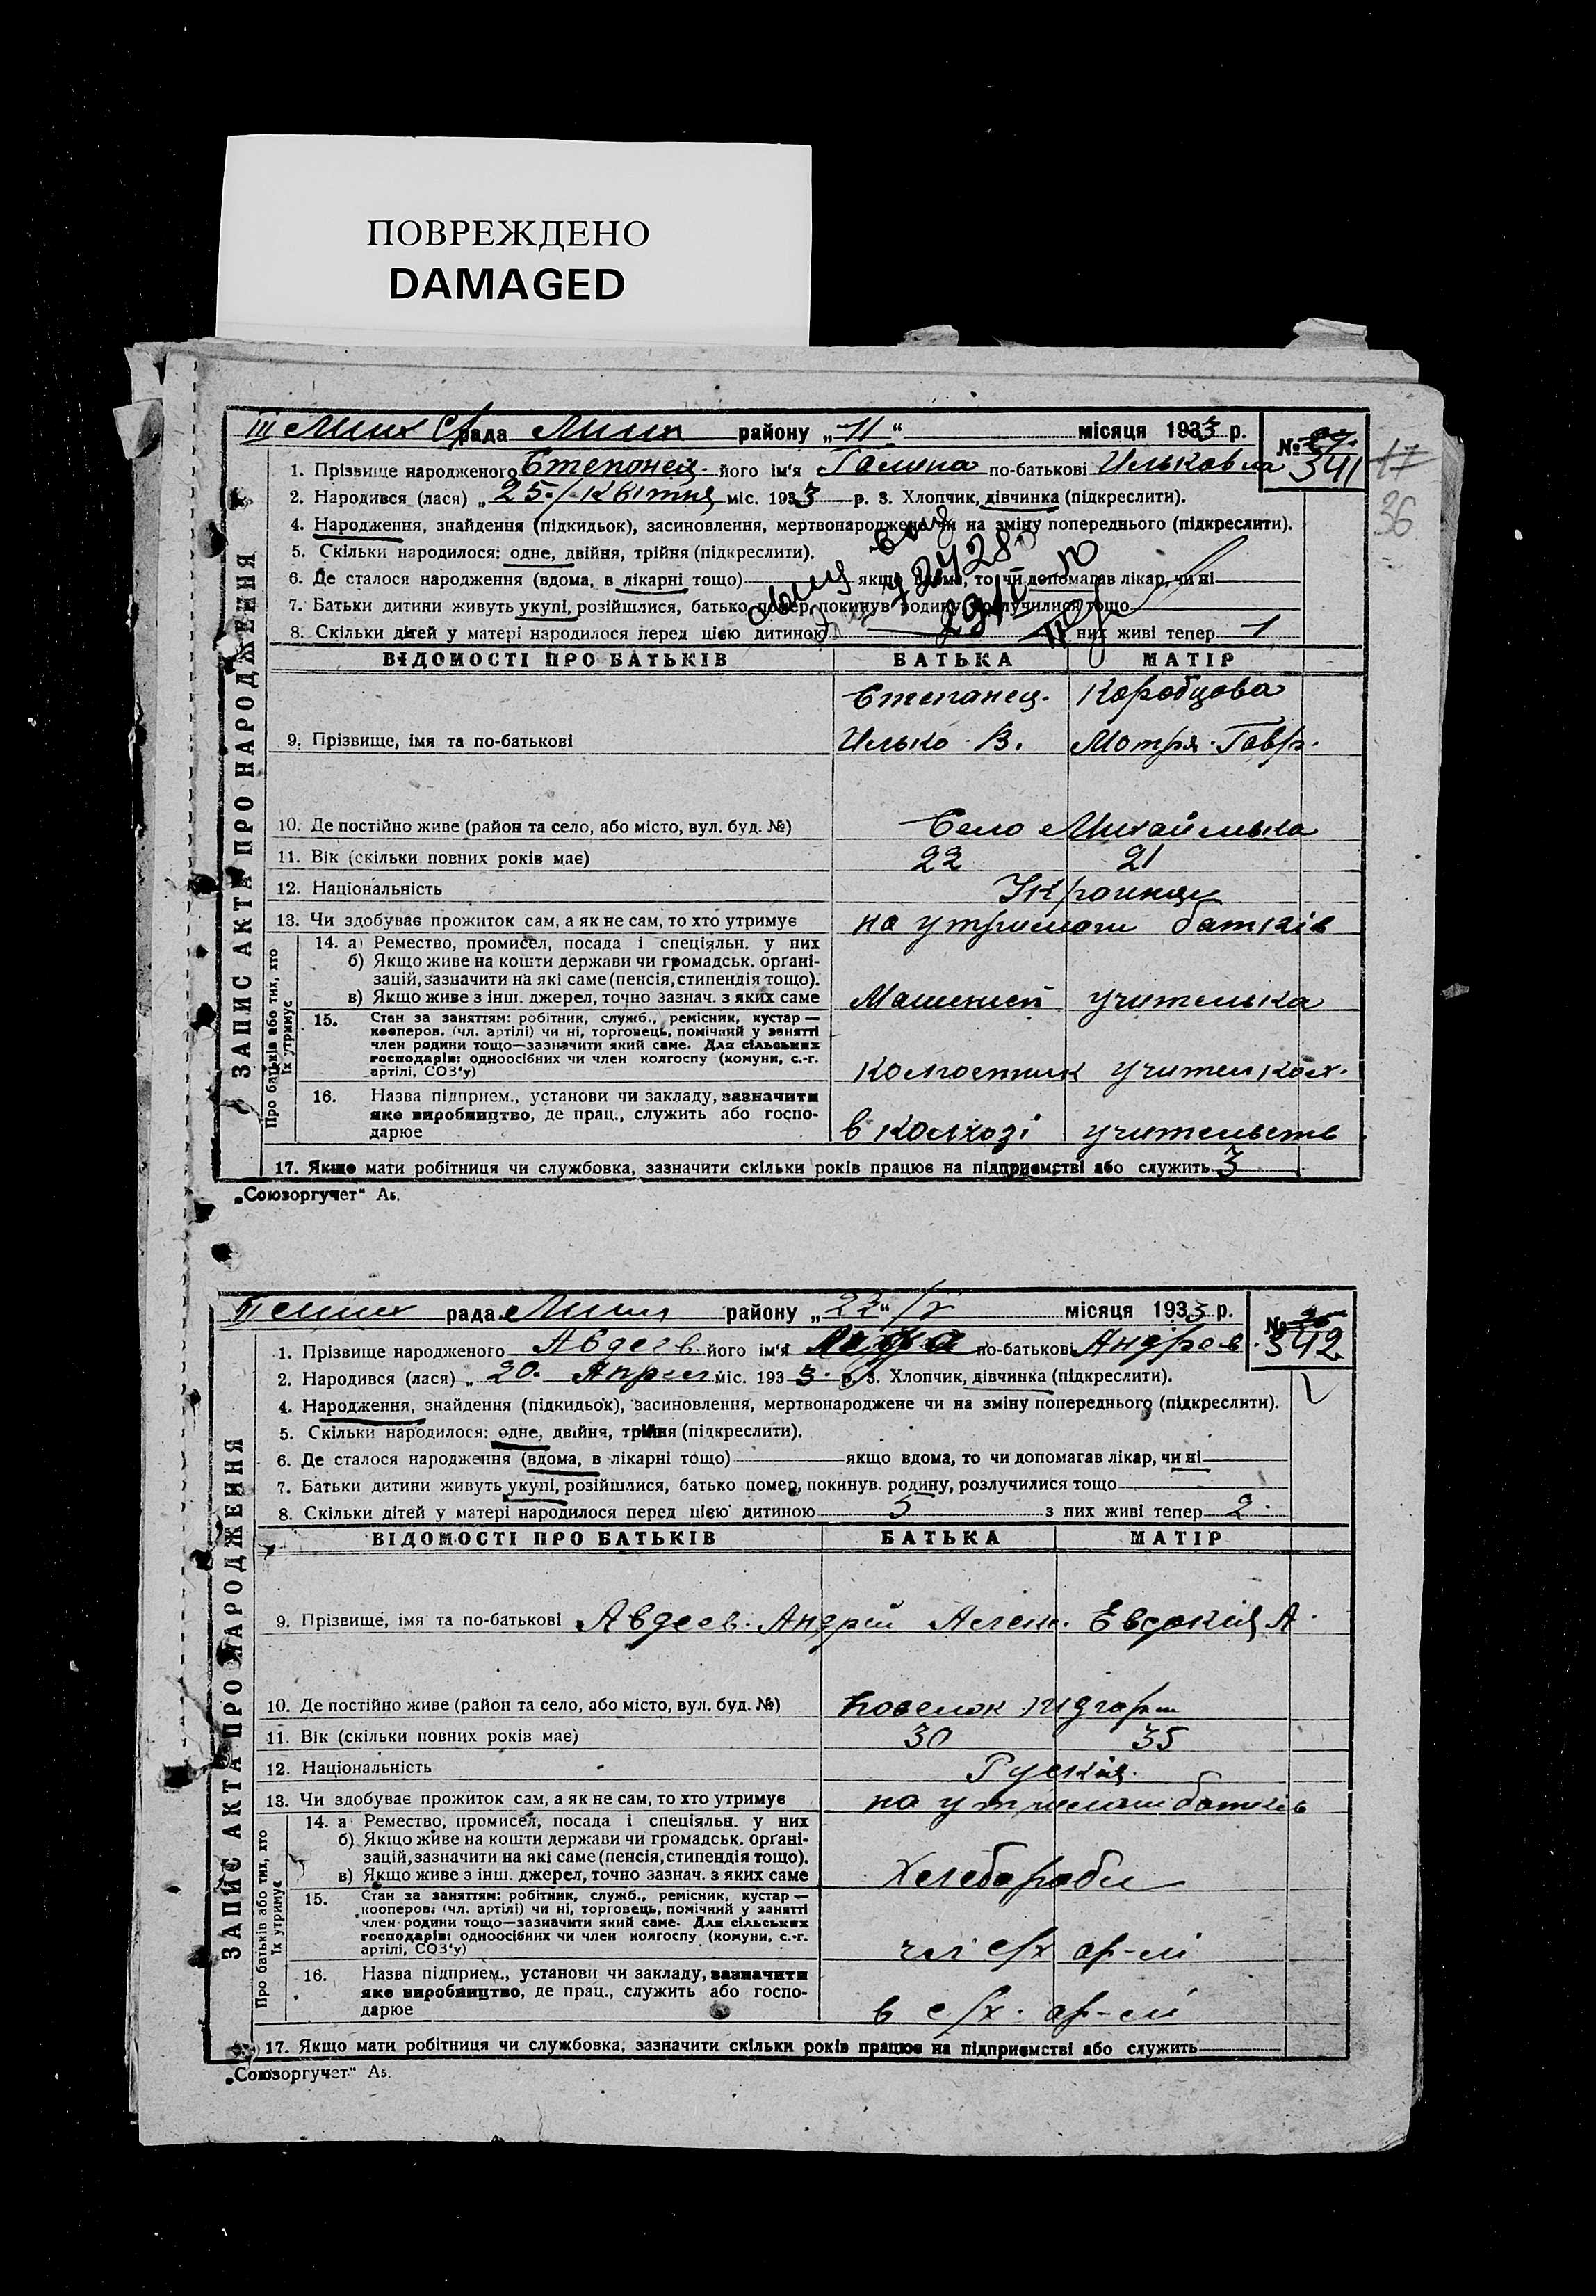 ПОВРЕЖДЕНО
DAMAGED
рада району „11“ місяця 1933 р.
№ 341
17
36
ЗАПИС АКТА ПРО НАРОДЖЕННЯ
1. Прізвище народженого Степонец його ім'я Галина по-батькові Ильковна
2. Народився (лася) „25 Квітня міс. 1933 р. 3. Хлопчик, дівчинка (підкреслити).
4. Народження, знайдення (підкидьок), засиновлення, мертвонароджене чи на зміну попереднього (підкреслити).
5. Скільки народилося: одне, двійня, трійня (підкреслити).
6. Де сталося народження (вдома, в лікарні тощо) якщо вдома, то чи допомагав лікар, чи ні
7. Батьки дитини живуть укупі, розійшлися, батько помер, покинув родину, розлучилися тощо
8. Скільки дітей у матері народилося перед цією дитиною них живі тепер 1
ВІДОМОСТІ ПРО БАТЬКІВ БАТЬКА МАТІР
Степанец. Коробцова
9. Прізвище, імя та по-батькові Илько В. Мотря Гавр.
10. Де постійно живе (район та село, або місто, вул. буд. №) Село Михайлівка
11. Вік (скільки повних років має) 22 21
12. Національність Українці
13. Чи здобуває прожиток сам, а як не сам, то хто утримує на утримані батьків
Про батьків або тих, хто їх утримує
14. а) Ремество, промисел, посада і спеціяльн. у них
б) Якщо живе на кошти держави чи громадськ. орґані-
зацій, зазначити на які саме (пенсія, стипендія тощо).
в) Якщо живе з інш. джерел, точно зазнач. з яких саме учителька
15. Стан за заняттям: робітник, служб., ремісник, кустар —
кооперов. (чл. артілі) чи ні, торговець, помічний у занятті
член родини тощо—зазначити який саме. Для сільських
господарів: одноосібних чи член колгоспу (комуни, с.-г.
артілі, СОЗ'у) колгоспник учител
16. Назва підприєм., установи чи закладу, зазначити
яке виробництво, де прац., служить або госпо-
дарює в колхозі учительств
17. Якщо мати робітниця чи службовка, зазначити скільки років працює на підприємстві або служить 3
„Союзоргучет“ Аь.
рада району „22“ /V місяця 1933 р.
№ 342
ЗАПИС АКТА ПРО НАРОДЖЕННЯ
1. Прізвище народженого Авдеев його ім'я по-батькові Андреев
2. Народився (лася) „20. Апрел міс. 1933 р. 3. Хлопчик, дівчинка (підкреслити).
4. Народження, знайдення (підкидьок), засиновлення, мертвонароджене чи на зміну попереднього (підкреслити).
5. Скільки народилося: одне, двійня, трійня (підкреслити).
6. Де сталося народження (вдома, в лікарні тощо) якщо вдома, то чи допомагав лікар, чи ні
7. Батьки дитини живуть укупі, розійшлися, батько помер, покинув родину, розлучилися тощо
8. Скільки дітей у матері народилося перед цією дитиною 5 з них живі тепер 2.
ВІДОМОСТІ ПРО БАТЬКІВ БАТЬКА МАТІР
9. Прізвище, імя та по-батькові Авдеев. Андрей Алекс. Евдокия А.
10. Де постійно живе (район та село, або місто, вул. буд. №) Поселок
11. Вік (скільки повних років має) 30 35
12. Національність Рускія.
13. Чи здобуває прожиток сам, а як не сам, то хто утримує на утримані батьків
Про батьків або тих, хто їх утримує
14. а Ремество, промисел, посада і спеціяльн. у них
б) Якщо живе на кошти держави чи громадськ. орґані-
зацій, зазначити на які саме (пенсія, стипендія тощо).
в) Якщо живе з інш. джерел, точно зазнач. з яких саме Хлебороби
15. Стан за заняттям: робітник, служб., ремісник, кустар —
кооперов. (чл. артілі) чи ні, торговець, помічний у занятті
член родини тощо—зазначити який саме. Для сільських
господарів: одноосібних чи член колгоспу (комуни, с.-г.
артілі, СОЗ'у) чл с/х ар-лі
16. Назва підприєм., установи чи закладу, зазначити
яке виробництво, де прац., служить або госпо-
дарює в с/х. ар-лі
17. Якщо мати робітниця чи службовка, зазначити скільки років працює на підприємстві або служить
„Союзоргучет“ Аь.